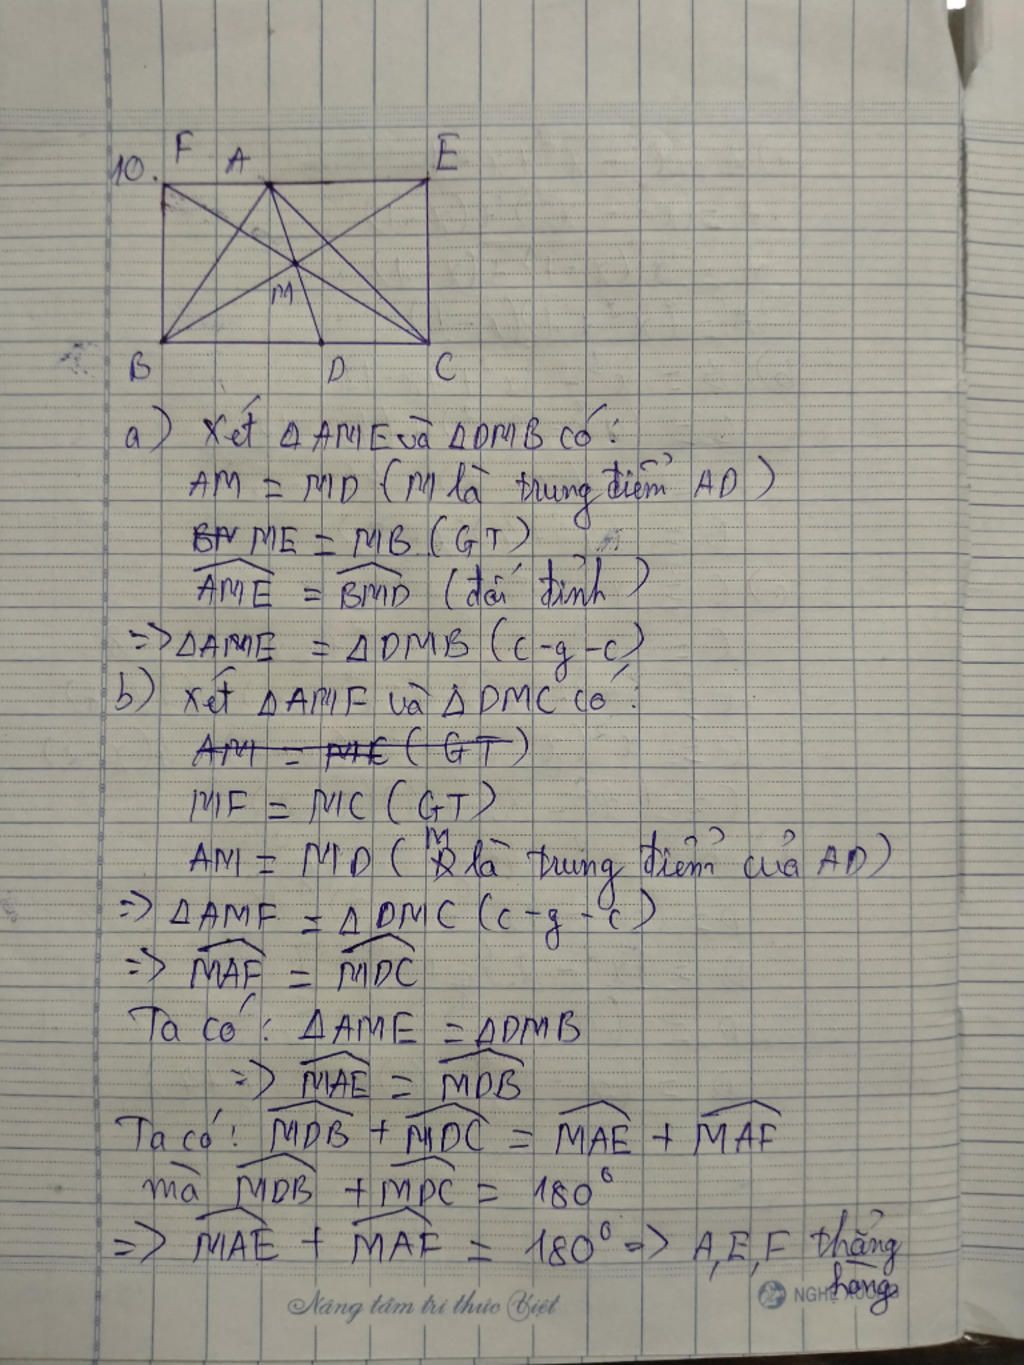 F A E
10.
M
B D C
a) Xét ΔAME và ΔDMB có:
AM = MD (M là trung điểm AD)
ME = MB (GT)
AME = BMD (đối đỉnh)
=> ΔAME = ΔDMB (c-g-c)
b) Xét ΔAMF và ΔDMC có:
AM = ME (GT)
MF = MC (GT)
AM = MD (M là trung điểm của AD)
=> ΔAMF = ΔDMC (c-g-c)
=> MAF = MDC
Ta có: ΔAME = ΔDMB
=> MAE = MDB
Ta có: MDB + MDC = MAE + MAF
mà MDB + MDC = 180°
=> MAE + MAF = 180° => A, E, F thẳng
hàng
Nâng tầm tri thức Việt